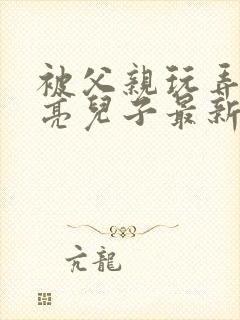 被父親玩弄
亮兒子最新
亢龍